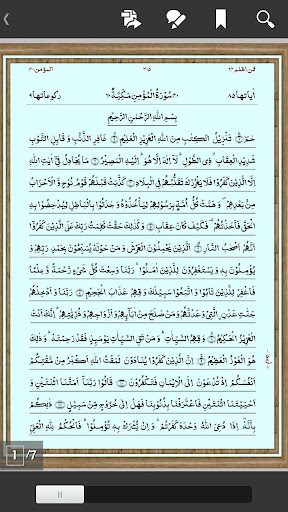 فمن اظلم ٢٤ ٤١٥ المؤمن ٤٠
اٰیاتها ٨٥ سُوْرَةُ الْمُؤْمِنِ مَكِّيَّةٌ ركوعاتها ٩
بِسْمِ اللهِ الرَّحْمٰنِ الرَّحِيْمِ
حٰمٓ تَنْزِيْلُ الْكِتٰبِ مِنَ اللهِ الْعَزِيْزِ الْعَلِيْمِ غَافِرِ الذَّنْۢبِ وَ قَابِلِ التَّوْبِ
شَدِيْدِ الْعِقَابِ ذِي الطَّوْلِ لَاۤ اِلٰهَ اِلَّا هُوَ اِلَيْهِ الْمَصِيْرُ مَا يُجَادِلُ فِيْۤ اٰيٰتِ اللهِ
اِلَّا الَّذِيْنَ كَفَرُوْا فَلَا يَغْرُرْكَ تَقَلُّبُهُمْ فِي الْبِلَادِ كَذَّبَتْ قَبْلَهُمْ قَوْمُ نُوْحٍ وَّ الْاَحْزَابُ
مِنْۢ بَعْدِهِمْ وَ هَمَّتْ كُلُّ اُمَّةٍۭ بِرَسُوْلِهِمْ لِيَاْخُذُوْهُ وَ جٰدَلُوْا بِالْبَاطِلِ لِيُدْحِضُوْا بِهِ
الْحَقَّ فَاَخَذْتُهُمْ فَكَيْفَ كَانَ عِقَابِ وَ كَذٰلِكَ حَقَّتْ كَلِمَتُ رَبِّكَ عَلَى الَّذِيْنَ كَفَرُوْۤا
اَنَّهُمْ اَصْحٰبُ النَّارِ اَلَّذِيْنَ يَحْمِلُوْنَ الْعَرْشَ وَ مَنْ حَوْلَهٗ يُسَبِّحُوْنَ بِحَمْدِ رَبِّهِمْ وَ
يُؤْمِنُوْنَ بِهٖ وَ يَسْتَغْفِرُوْنَ لِلَّذِيْنَ اٰمَنُوْا رَبَّنَا وَسِعْتَ كُلَّ شَيْءٍ رَّحْمَةً وَّ عِلْمًا
فَاغْفِرْ لِلَّذِيْنَ تَابُوْا وَ اتَّبَعُوْا سَبِيْلَكَ وَ قِهِمْ عَذَابَ الْجَحِيْمِ رَبَّنَا وَ اَدْخِلْهُمْ
جَنّٰتِ عَدْنِ ࣙالَّتِيْ وَعَدْتَّهُمْ وَ مَنْ صَلَحَ مِنْ اٰبَآئِهِمْ وَ اَزْوَاجِهِمْ وَ ذُرِّيّٰتِهِمْ اِنَّكَ اَنْتَ
الْعَزِيْزُ الْحَكِيْمُ وَ قِهِمُ السَّيِّاٰتِ وَ مَنْ تَقِ السَّيِّاٰتِ يَوْمَئِذٍ فَقَدْ رَحِمْتَهٗ وَ ذٰلِكَ
هُوَ الْفَوْزُ الْعَظِيْمُ اِنَّ الَّذِيْنَ كَفَرُوْا يُنَادَوْنَ لَمَقْتُ اللهِ اَكْبَرُ مِنْ مَّقْتِكُمْ
اَنْفُسَكُمْ اِذْ تُدْعَوْنَ اِلَى الْاِيْمَانِ فَتَكْفُرُوْنَ قَالُوْا رَبَّنَاۤ اَمَتَّنَا اثْنَتَيْنِ وَ
اَحْيَيْتَنَا اثْنَتَيْنِ فَاعْتَرَفْنَا بِذُنُوْبِنَا فَهَلْ اِلٰى خُرُوْجٍ مِّنْ سَبِيْلٍ ذٰلِكُمْ
بِاَنَّهٗۤ اِذَا دُعِيَ اللهُ وَحْدَهٗ كَفَرْتُمْ وَ اِنْ يُّشْرَكْ بِهٖ تُؤْمِنُوْا فَالْحُكْمُ لِلّٰهِ الْعَلِيِّ
1/7